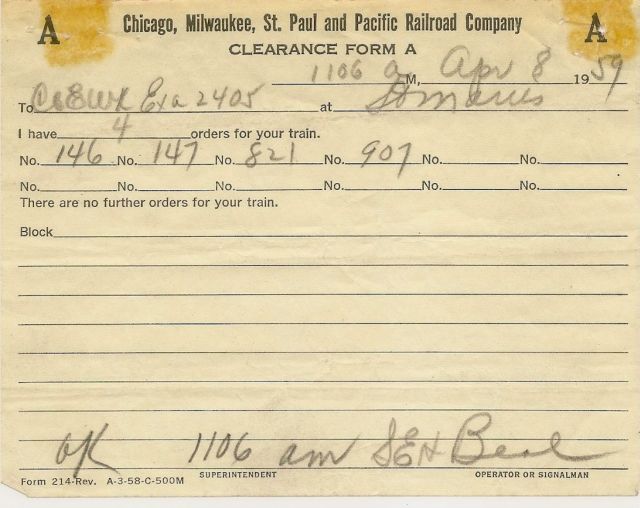 A Chicago, Milwaukee, St. Paul and Pacific Railroad Company A
CLEARANCE FORM A
1106 a M, Apr 8 1959
To C&E Wk Exa 2405 at St Maries
I have 4 orders for your train.
No. 146 No. 147 No. 821 No. 907 No. No.
No. No. No. No. No. No.
There are no further orders for your train.
Block
OK 1106 am SEH Beal
SUPERINTENDENT OPERATOR OR SIGNALMAN
Form 214-Rev. A-3-58-C-500M